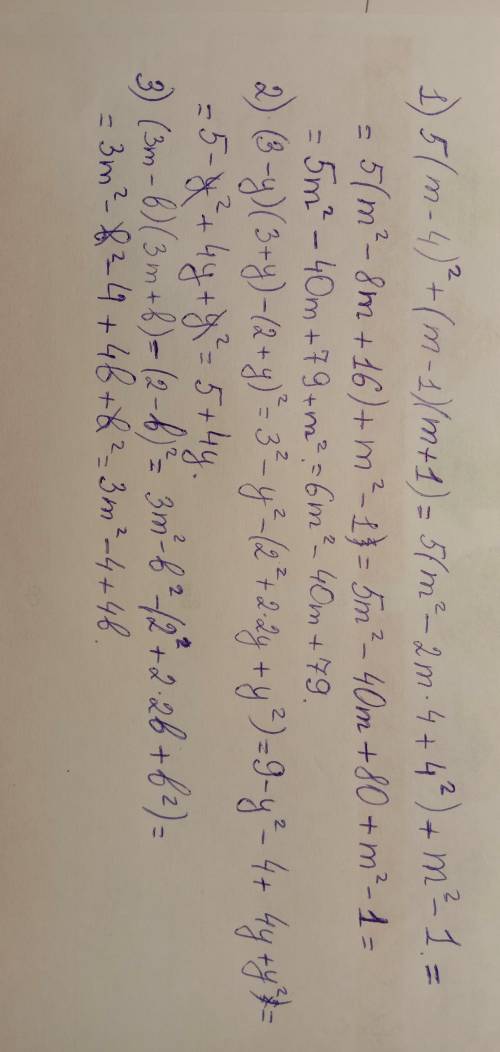 1) 5(m-4)²+(m-1)(m+1)=5(m²-2m·4+4²)+m²-1=
=5(m²-8m+16)+m²-1)=5m²-40m+80+m²-1=
=5m²-40m+79+m²=6m²-40m+79.
2) (3-y)(3+y)-(2+y)²=3²-y²-(2²+2·2y+y²)=9-y²-4+4y+y²)=
=5-y²+4y+y²=5+4y.
3) (3m-b)(3m+b)=(2-b)²=3m²-b²-(2²+2·2b+b²)=
=3m²-b²-4+4b+b²=3m²-4+4b.